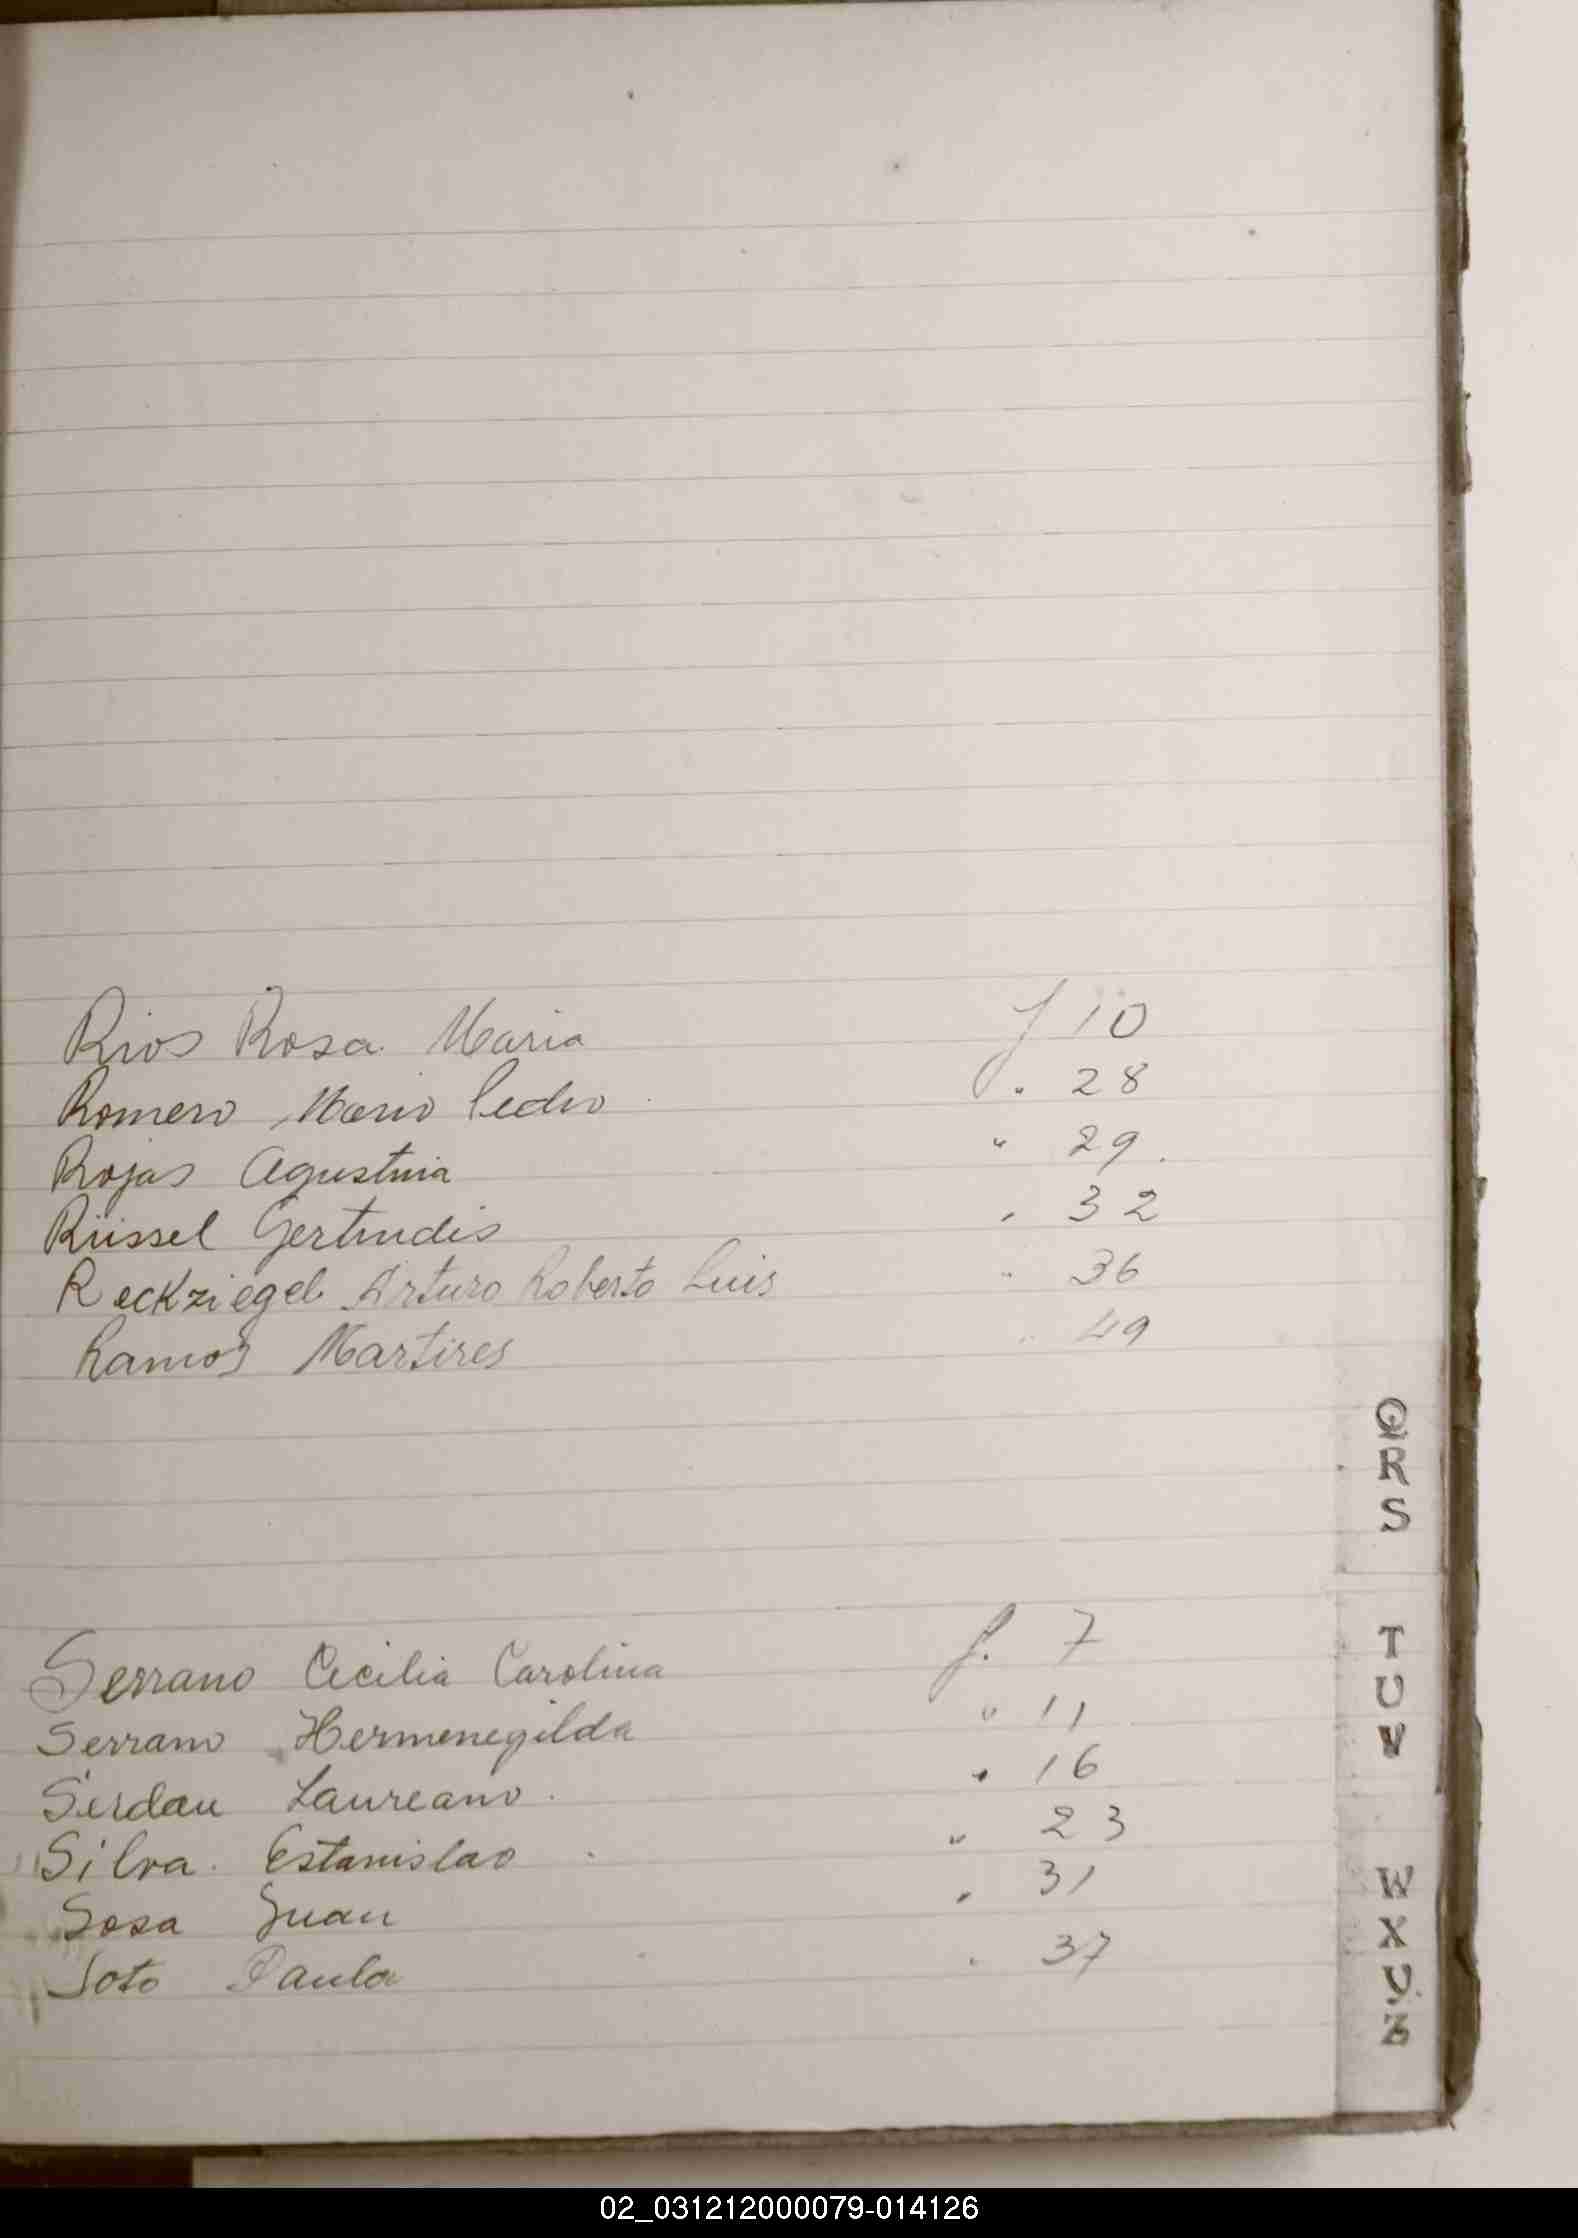 Rios Rosa Maria f 10
Romero Mario Pedro " 28
Rojas Agustina " 29.
Rüssel Gertrudis " 32
Reckziegel Arturo Roberto Luis " 36
Ramos Martires " 49
Q
R
S
Serrano Cecilia Carolina f. 7
Serrano Hermenegilda " 11
Serdan Laureano. " 16
Silva. Estanislao " 23
Sosa Juan " 31
Soto Paula " 37
T
U
V
W
X
Y
Z
02_031212000079-014126